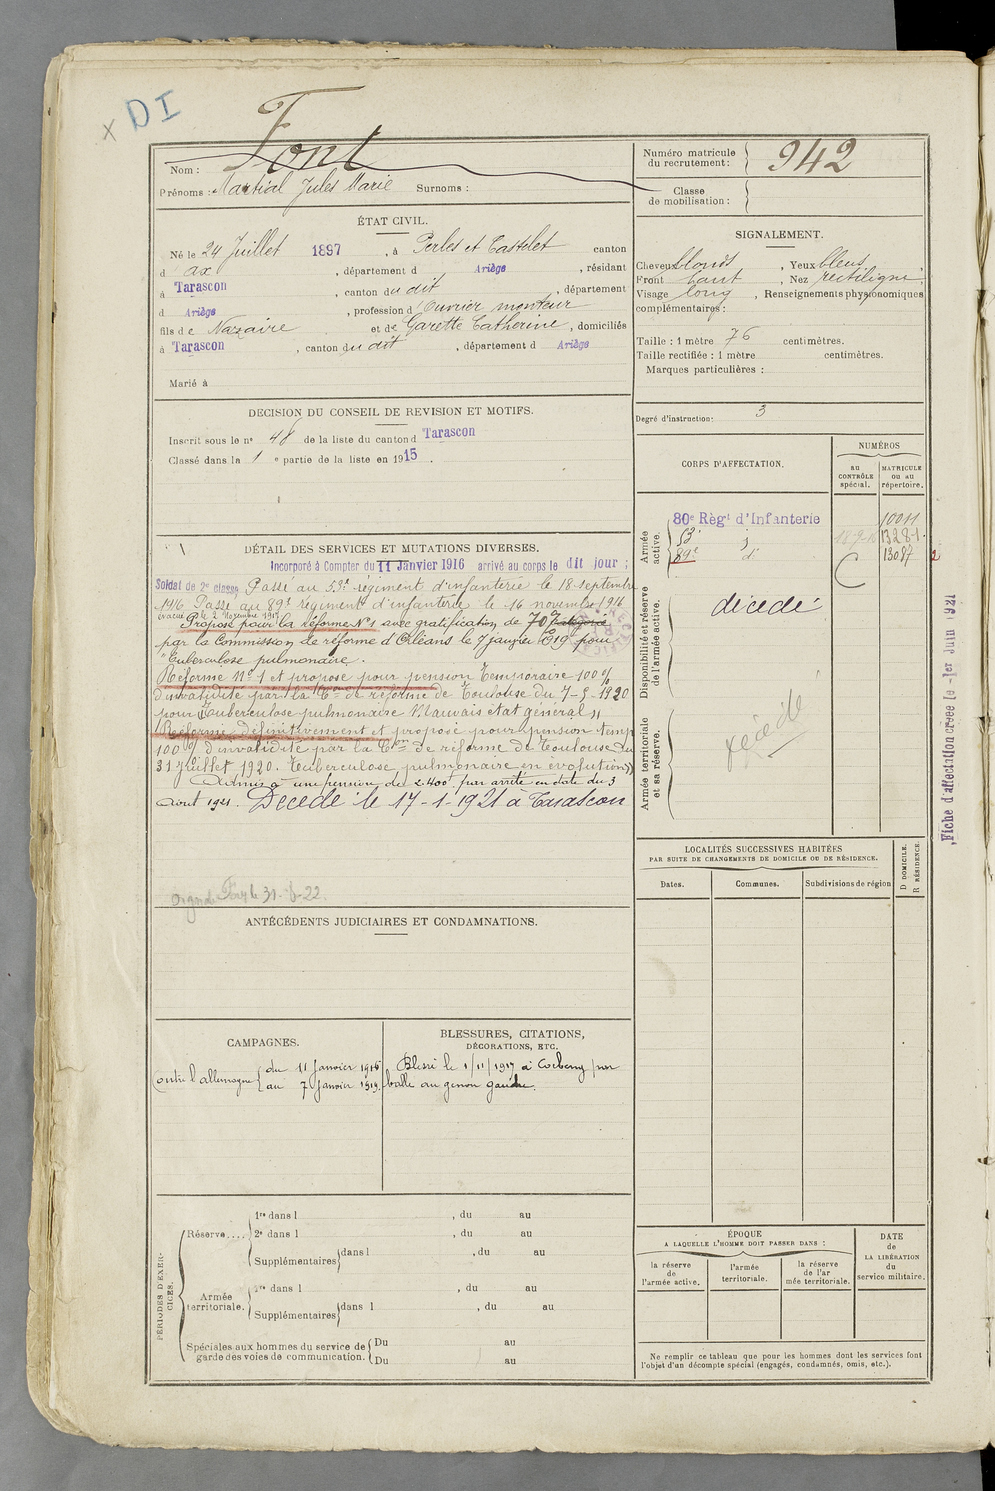 x DI
Nom : Font
Prénoms : Martial Jules Marie Surnoms :
Numéro matricule du recrutement : 942
Classe de mobilisation :
ÉTAT CIVIL.
Né le 24 Juillet 1897, à Perles et Castelet canton
d ax, département d Ariège, résidant
à Tarascon, canton du dit, département
d Ariège, profession d'Ouvrier monteur
fils de Nazaire et de Garette Catherine, domiciliés
à Tarascon, canton du dit, département d Ariège
Marié à
SIGNALEMENT.
Cheveux blonds, Yeux bleus,
Front haut, Nez rectiligne,
Visage long, Renseignements physionomiques
complémentaires :
Taille : 1 mètre 76 centimètres.
Taille rectifiée : 1 mètre centimètres.
Marques particulières :
Degré d'instruction : 3
DECISION DU CONSEIL DE REVISION ET MOTIFS.
Inscrit sous le n° 48 de la liste du canton d Tarascon
Classé dans la 1e partie de la liste en 1915.
DÉTAIL DES SERVICES ET MUTATIONS DIVERSES.
Incorporé à Compter du 11 Janvier 1916 arrivé au corps le dit jour ;
Soldat de 2e classe Passé au 53e régiment d'infanterie le 18 septembre
1916 Passé au 89e régiment d'infanterie le 16 novembre 1916
évacué le 2 Novembre 1917
Proposé pour la réforme N°1 avec gratification de 7e Catégorie
par la Commission de réforme d'Orléans le 7 janvier 1919 pour
"Tuberculose pulmonaire.
Réformé N° 1 et proposé pour pension Temporaire 100%
d'invalidité par la Con de réforme de Toulouse du 7-5-1920
pour Tuberculose pulmonaire Mauvais état général))
Réformé définitivement et proposé pour pension temp
100% d'invalidité par la Con de réforme de Toulouse du
31 Juillet 1920. Tuberculose pulmonaire en évolution))
Admis à une pension de 2.400f par arrêté en date du 3
Aout 1921. Décédé le 17-1-1921 à Tarascon
31-8-22.
CORPS D'AFFECTATION.
NUMÉROS
AU CONTRÔLE spécial.
MATRICULE OU AU répertoire.
Armée active.
80e Régt d'Infanterie 10011
53e 1328-1
89e di 13087 2
Disponibilité et réserve de l'armée active.
décédé
Armée territoriale et sa réserve.
décédé
Fiche d'affectation créée le 1er Juin 1921
LOCALITÉS SUCCESSIVES HABITÉES
PAR SUITE DE CHANGEMENTS DE DOMICILE OU DE RÉSIDENCE.
Dates.
Communes.
Subdivisions de région
D DOMICILE.
R RÉSIDENCE.
ANTÉCÉDENTS JUDICIAIRES ET CONDAMNATIONS.
CAMPAGNES.
Contre l'allemagne { du 11 Janvier 1916
au 7 Janvier 1919.
BLESSURES, CITATIONS,
DÉCORATIONS, ETC.
Blessé le 1/11/1917 à Corbeny par
balle au genou gauche.
PÉRIODES D'EXERCICES.
Réserve....
1re dans l , du au
2e dans l , du au
Supplémentaires dans l , du au
Armée territoriale.
1re dans l , du au
Supplémentaires dans l , du au
Spéciales aux hommes du service de garde des voies de communication.
Du au
Du au
ÉPOQUE
A LAQUELLE L'HOMME DOIT PASSER DANS :
la réserve de l'armée active.
l'armée territoriale.
la réserve de l'ar mée territoriale.
DATE de LA LIBÉRATION du service militaire.
Ne remplir ce tableau que pour les hommes dont les services font
l'objet d'un décompte spécial (engagés, condamnés, omis, etc.).